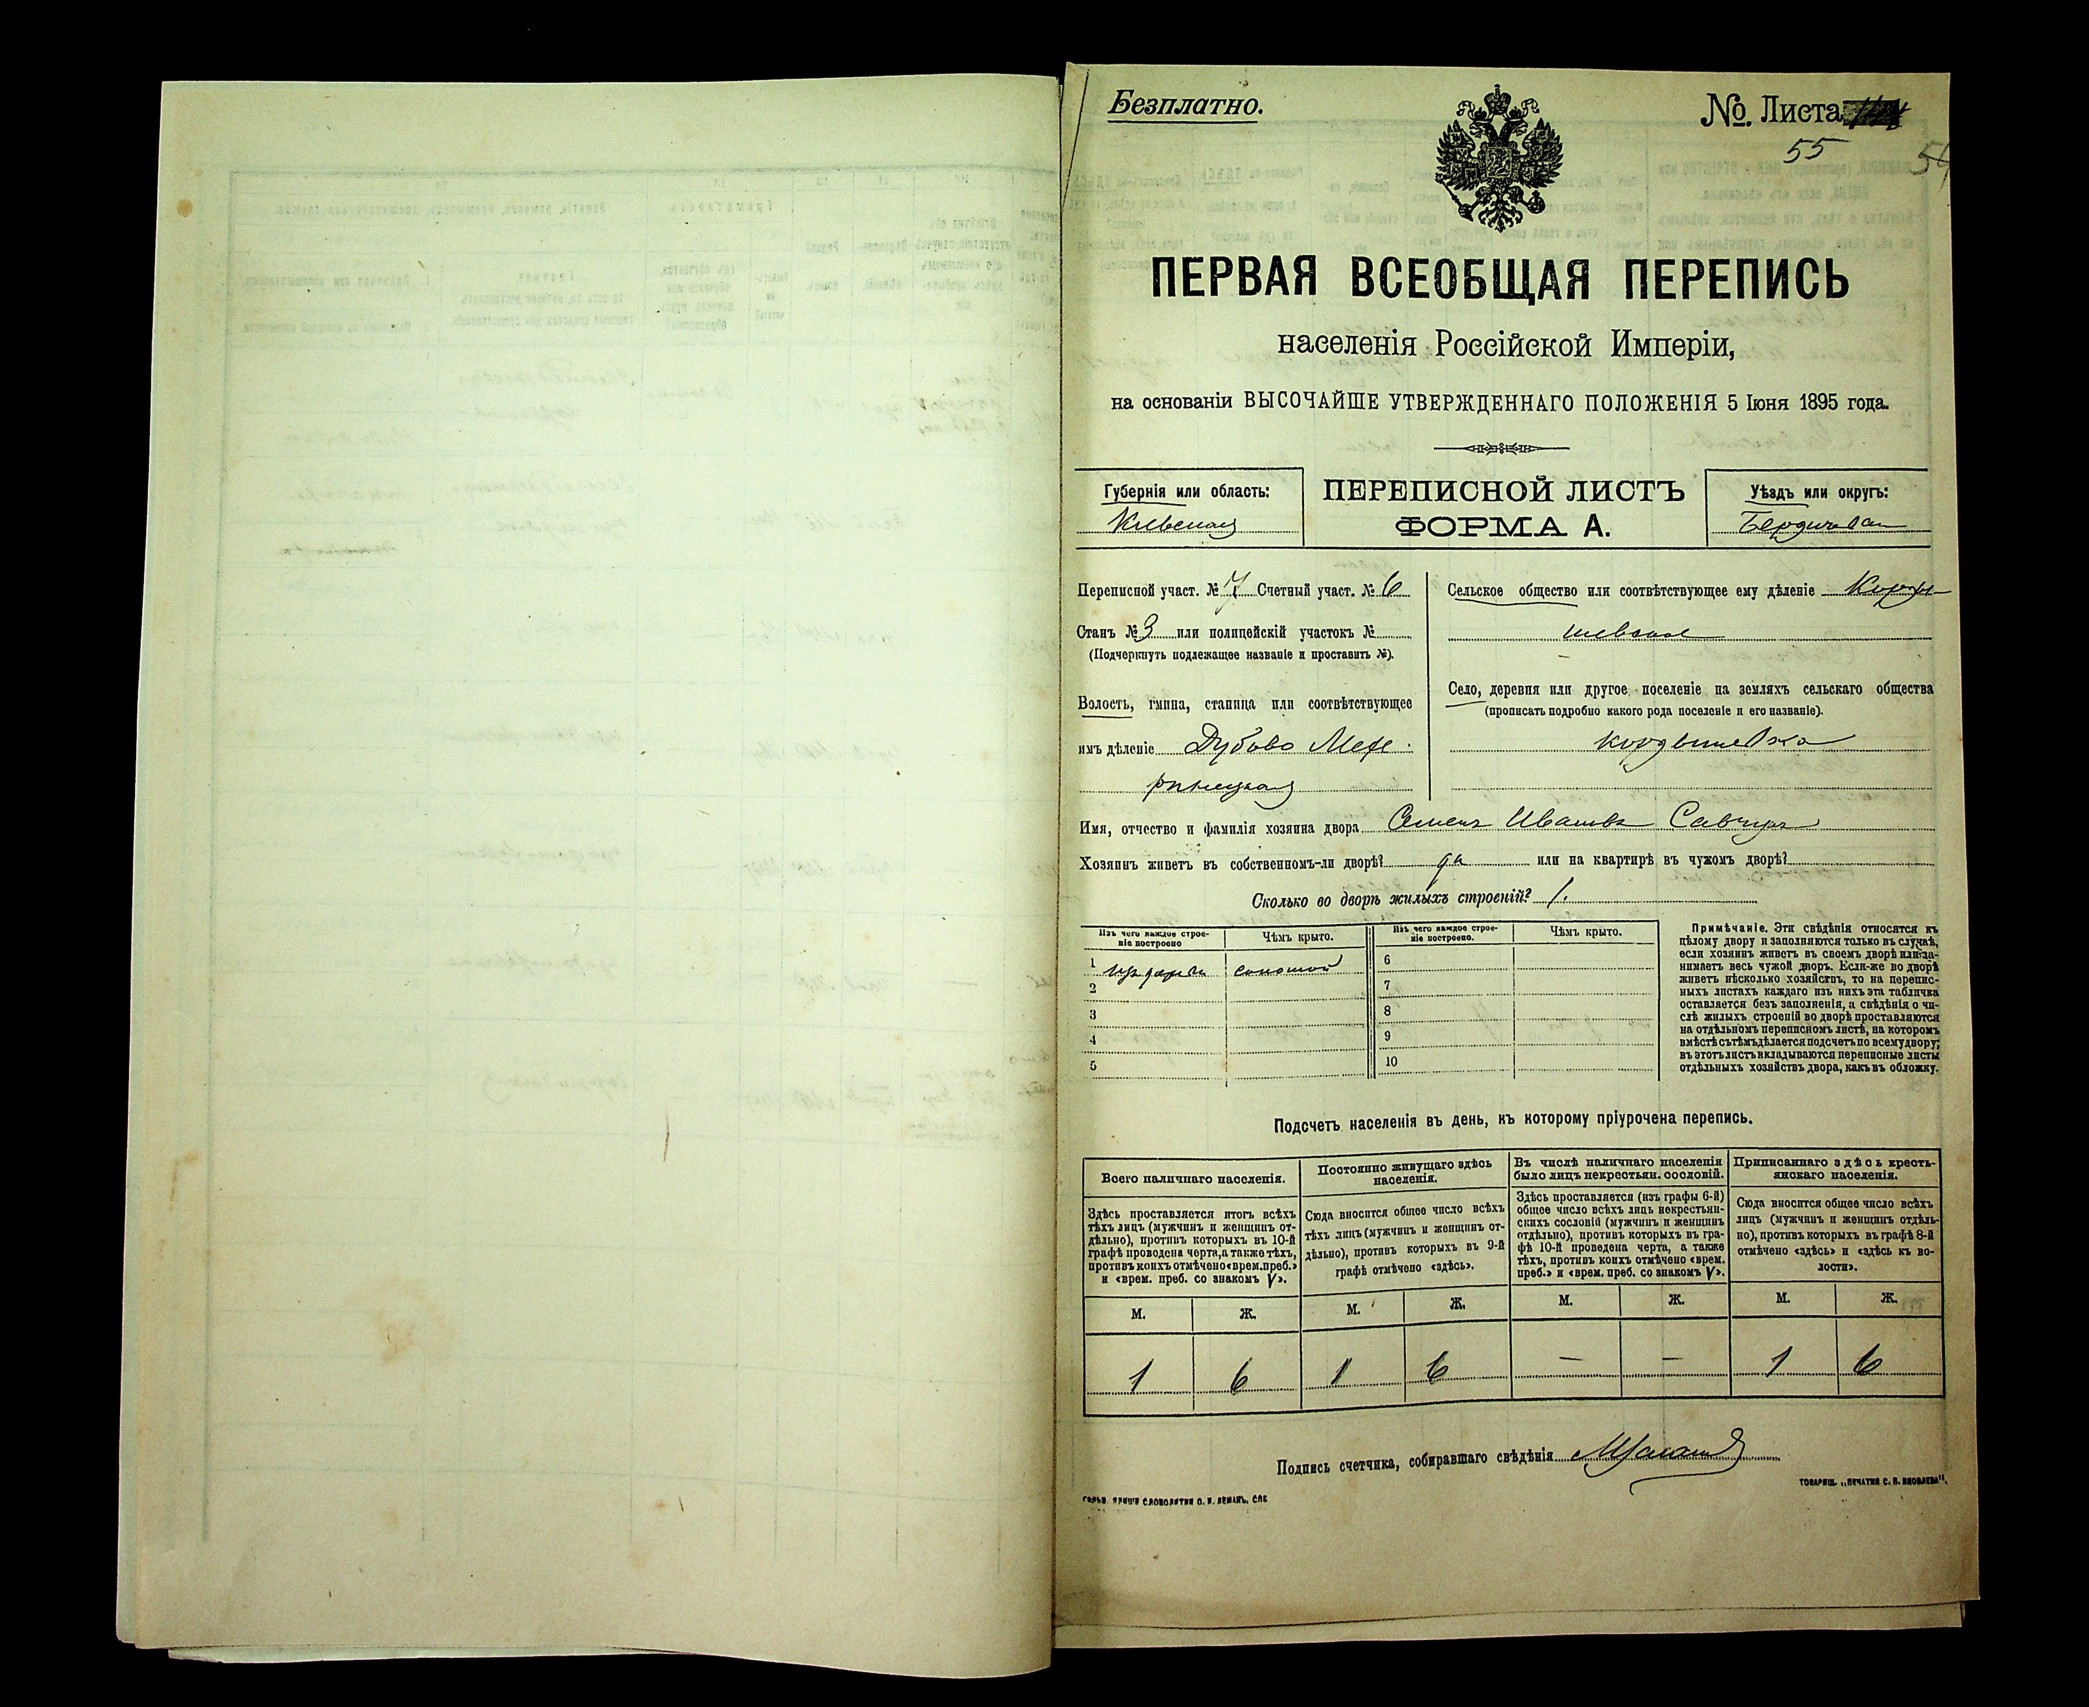 Безплатно.
№ Листа
55
54
ПЕРВАЯ ВСЕОБЩАЯ ПЕРЕПИСЬ
населенія Россійской Имперіи,
на основаніи ВЫСОЧАЙШЕ УТВЕРЖДЕННАГО ПОЛОЖЕНІЯ 5 Іюня 1895 года.
Губернія или область:
Кіевская
ПЕРЕПИСНОЙ ЛИСТЪ
ФОРМА А.
Уѣздъ или округъ:
Бердичевскій
Переписной участ. № 7 Счетный участ. № 6
Станъ № 3 или полицейскій участокъ №
(Подчеркнуть подлежащее названіе и проставить №).
Волость, гмина, станица или соотвѣтствующее
имъ дѣленіе Дубово Махе
ринецкая
Сельское общество или соотвѣтствующее ему дѣленіе Корды-
шевское
Село, деревня или другое поселеніе на земляхъ сельскаго общества
(прописать подробно какого рода поселеніе и его названіе).
Кордышевка
Имя, отчество и фамилія хозяина двора Семенъ Ивановъ Савчукъ
Хозяинъ живетъ въ собственномъ-ли дворѣ? да или на квартирѣ въ чужомъ дворѣ?
Сколько во дворѣ жилыхъ строеній? 1.
Изъ чего каждое строе-
ніе построено
Чѣмъ крыто.
Изъ чего каждое строе-
ніе построено.
Чѣмъ крыто.
1 изъ дерева соломой
2
3
4
5
6
7
8
9
10
Примѣчаніе. Эти свѣдѣнія относятся къ
цѣлому двору и заполняются только въ случаѣ,
если хозяинъ живетъ въ своемъ дворѣ или за-
нимаетъ весь чужой дворъ. Если-же во дворѣ
живетъ нѣсколько хозяйствъ, то на перепис-
ныхъ листахъ каждаго изъ нихъ эта табличка
оставляется безъ заполненія, а свѣдѣнія о чи-
слѣ жилыхъ строеній во дворѣ проставляются
на отдѣльномъ переписномъ листѣ, на которомъ
вмѣстѣ съ тѣмъ дѣлается подсчетъ по всему двору;
въ этотъ листъ вкладываются переписные листы
отдѣльныхъ хозяйствъ двора, какъ въ обложку.
Подсчетъ населенія въ день, къ которому пріурочена перепись.
Всего наличнаго населенія.
Здѣсь проставляется итогъ всѣхъ
тѣхъ лицъ (мужчинъ и женщинъ от-
дѣльно), противъ которыхъ въ 10-й
графѣ проведена черта, а также тѣхъ,
противъ коихъ отмѣчено «врем. преб.»
и «врем. преб. со знакомъ V».
Постоянно живущаго здѣсь
населенія.
Сюда вносится общее число всѣхъ
тѣхъ лицъ (мужчинъ и женщинъ от-
дѣльно), противъ которыхъ въ 9-й
графѣ отмѣчено «здѣсь».
Въ числѣ наличнаго населенія
было лицъ некрестьян. сословій.
Здѣсь проставляется (изъ графы 6-й)
общее число всѣхъ лицъ некрестьян-
скихъ сословій (мужчинъ и женщинъ
отдѣльно), противъ которыхъ въ гра-
фѣ 10-й проведена черта, а также
тѣхъ, противъ коихъ отмѣчено «врем.
преб.» и «врем. преб. со знакомъ V».
Приписаннаго здѣсь кресть-
янскаго населенія.
Сюда вносится общее число всѣхъ
лицъ (мужчинъ и женщинъ отдѣль-
но), противъ которыхъ въ графѣ 8-й
отмѣчено «здѣсь» и «здѣсь къ во-
лости».
М. Ж. М. Ж. М. Ж. М. Ж.
1 6 1 6 — — 1 6
Подпись счетчика, собиравшаго свѣдѣнія
СЛОВОЛИТНИ О. И. ЛЕМАНЪ, СПБ
ТОВАРИЩ. „ПЕЧАТНЯ С. П. ЯКОВЛЕВА“.